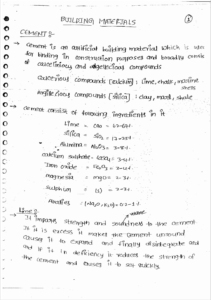 BUILDING MATERIALS
CEMENT :-
→ cement is an artificial building material which is
for binding in construction purposes and broadly
of calcareous and argillaceous compounds
calcareous compounds : Lime, chalk, marine
argillaceous compounds : clay, marl, shale
→ cement consist of following ingredients in it
Lime - CaO - 62-65%
silica - SiO2
Alumina - Al2O3 - 3-8%
calcium sulphate - CaSO4 - 3-4%
Iron oxide - Fe2O3 - 3-4%
magnesia - MgO - 2-3%
Sulphur - (S) - 1-3%
Alkalies - (Na2O, K2O) - 0.2-1%
Lime :-
It imparts strength and soundness to the cement
If it is excess it makes the cement unsound
causing it to expand and finally disintegrate and
if it is in deficiency it reduces the strength of
the cement and causes it to set quickly